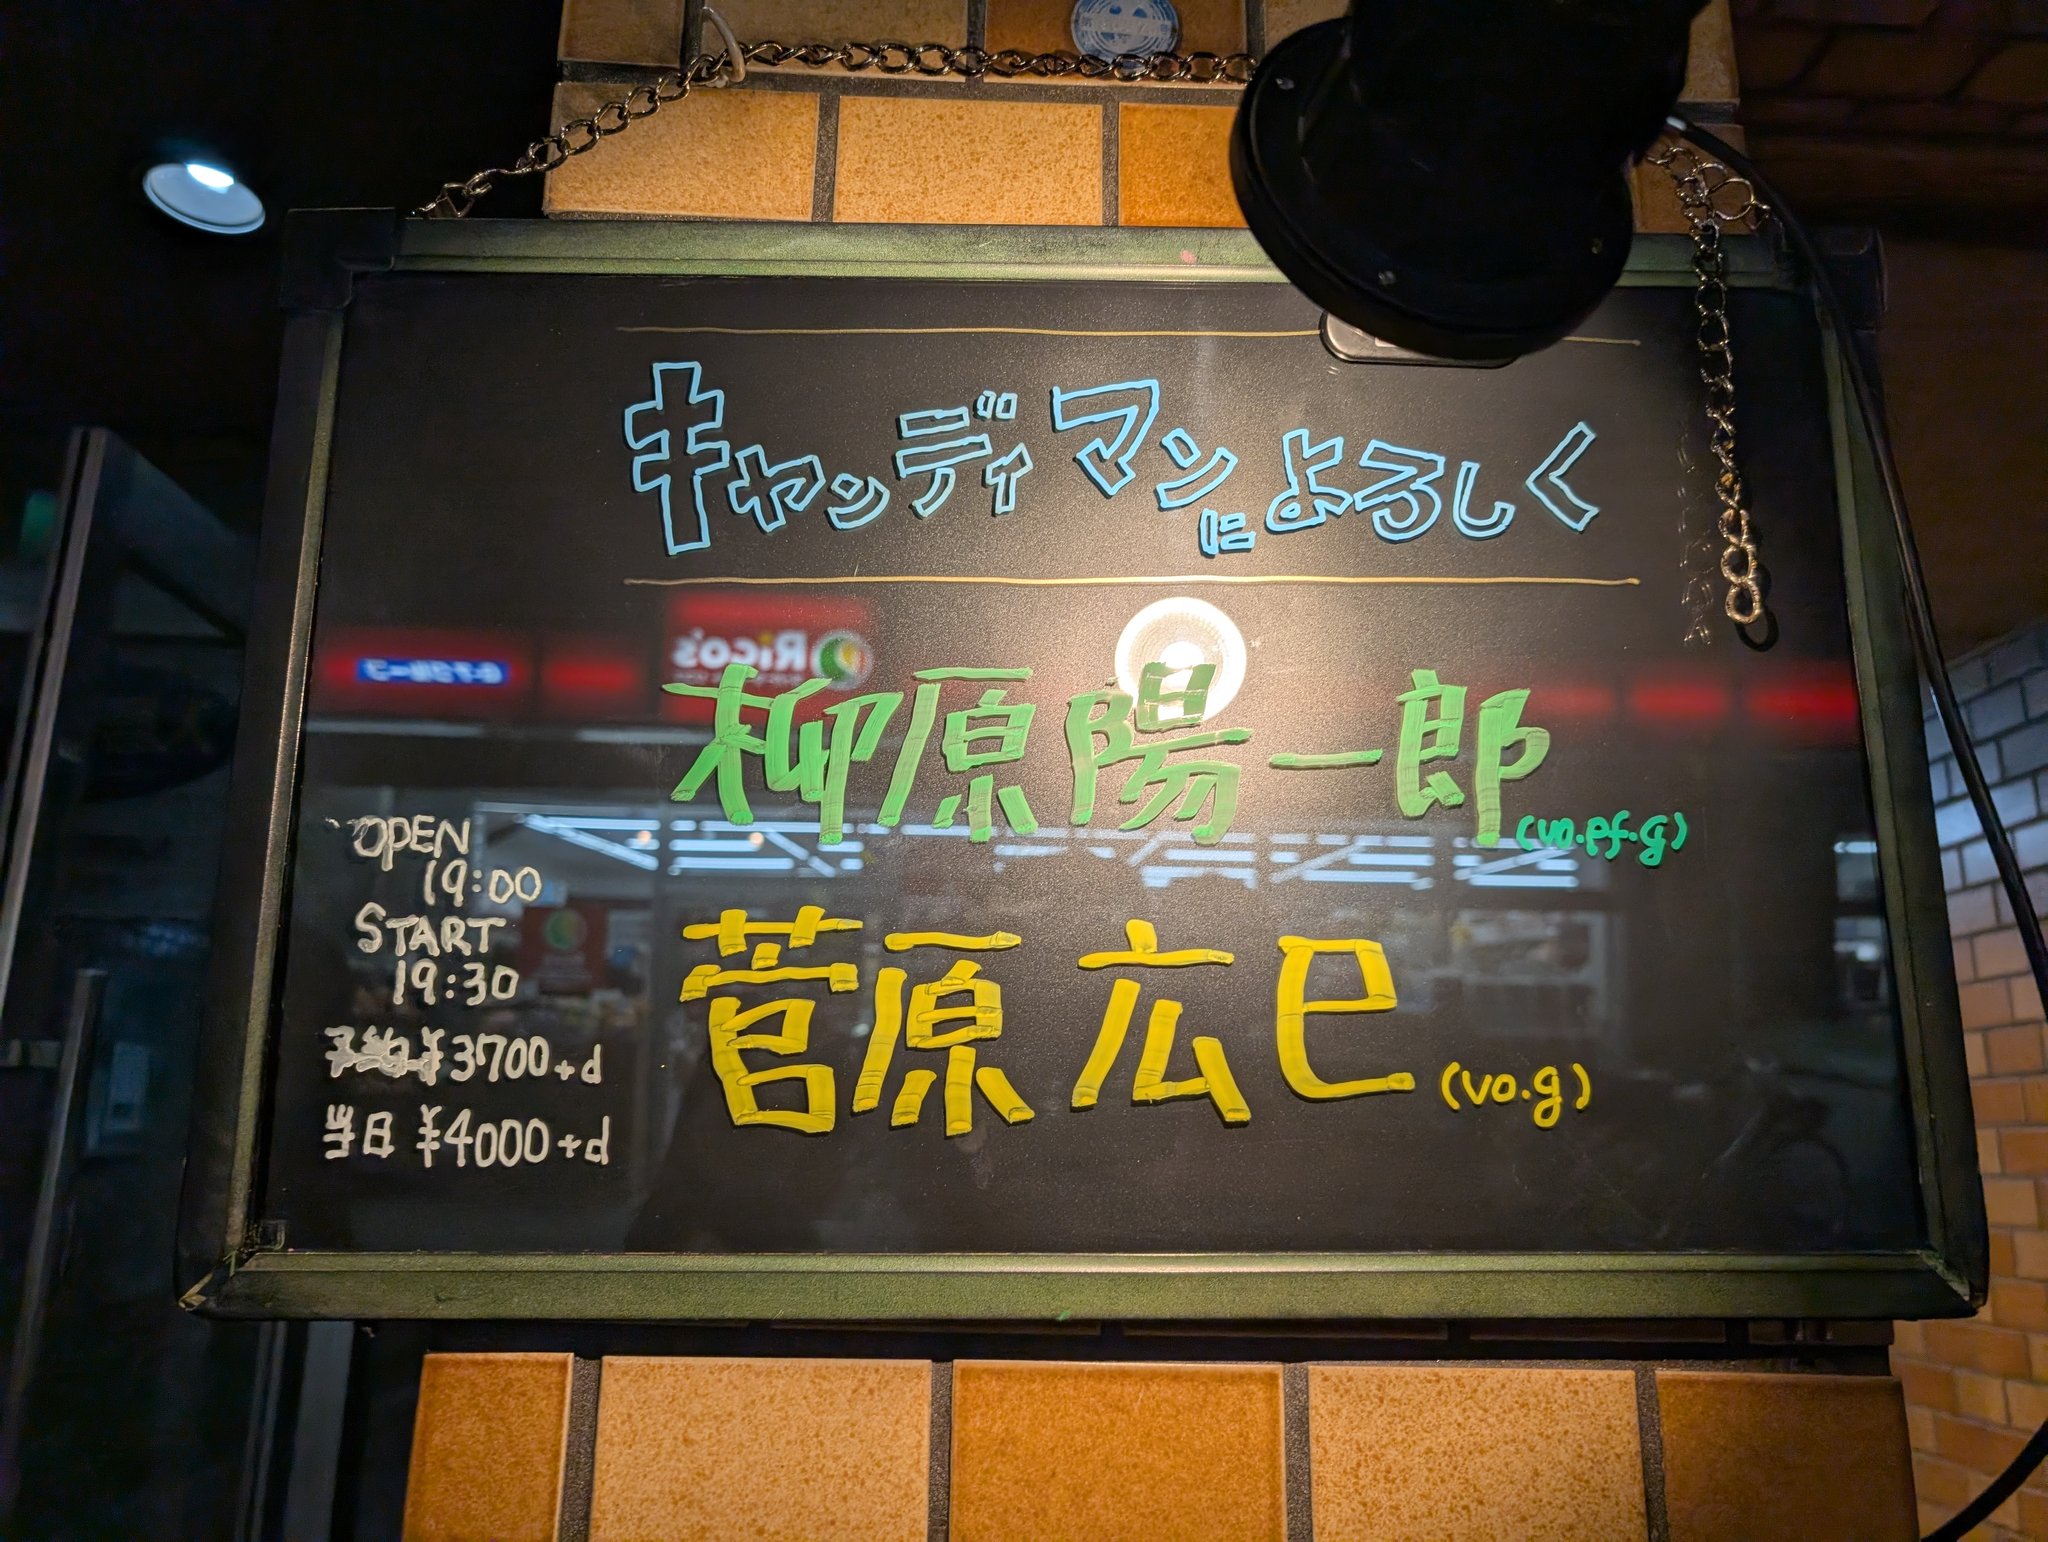 キャンディマンによろしく
柳原陽一郎
(vo.pf.g)
菅原広巳
(vo.g)
OPEN
19:00
START
19:30
予約¥3700+d
当日¥4000+d
Rico's